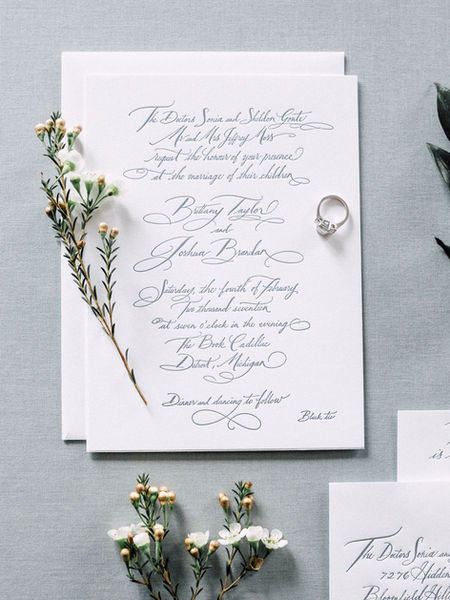 The Doctors Sonia and Sheldon Gonte
Mr and Mrs Jeffrey Moss
request the honour of your presence
at the marriage of their children
Brittany Taylor
and
Joshua Brandon
Saturday, the fourth of February
Two thousand seventeen
at seven o'clock in the evening
The Book Cadillac
Detroit, Michigan
Dinner and dancing to follow
Black tie
is
The Doctors Sonia and
7276 Hidden
Bloomfield Hills